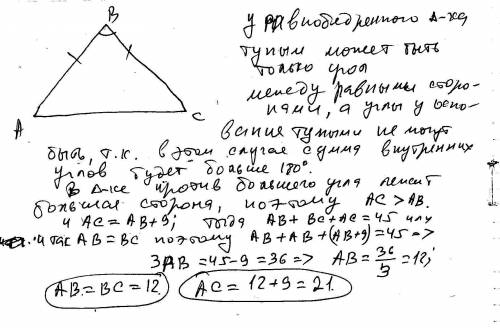 B
A
C
у равнобедренного Δ-ка
тупым может быть
только угол
между равными сторо-
нами, а углы у осно-
вания тупыми не могут
быть, т.к. в этом случае сумма внутренних
углов будет больше 180°.
В Δ-ке против большего угла лежит
большая сторона, поэтому AC > AB.
и AC = AB+9; тогда AB + BC + AC = 45 или
и так AB = BC поэтому AB + AB + (AB + 9) = 45 =>
3AB = 45 - 9 = 36 => AB = 36/3 = 12;
AB = BC = 12. AC = 12 + 9 = 21.